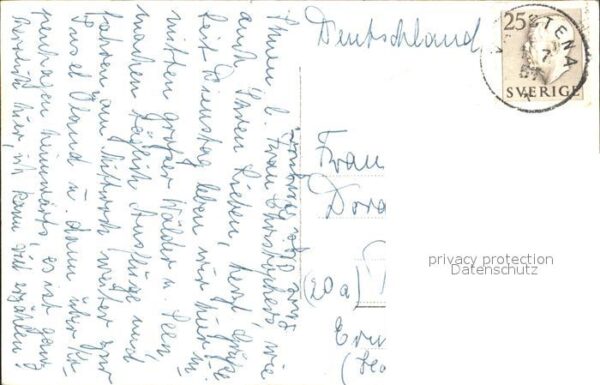 Ihnen l. Frau Christophers, wie
auch Ihren Lieben, herzl. Grüße
Seit Dienstag leben wir hier in-
mitten großer Wälder u. Seen,
machen täglich Ausflüge und
fahren am Mittwoch weiter zur
Insel Öland u. dann über Ko-
penhagen heimwärts, es ist ganz
herrlich hier, ich kann viel erzählen!
Deutschland
25
SVERIGE
TENA
7
Frau
Dora
(20a)
privacy protection
Datenschutz